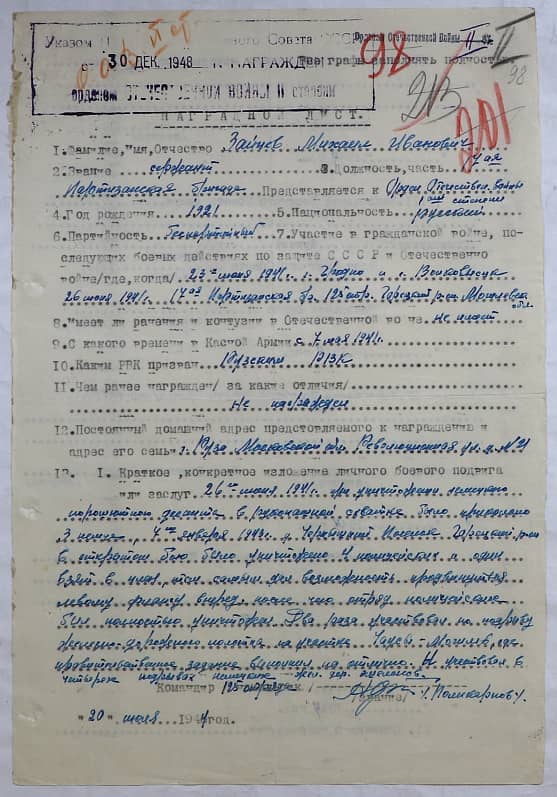 Указом П ного Совета СССР
от 30 ДЕК. 1948 г. НАГРАЖДЕН
орденом ОТЕЧЕСТВЕННОЙ ВОЙНЫ II степени
Орденом Отечественной Войны II ст.
Все графы заполнять полностью.
98
II
98
213
201
НАГРАДНОЙ ЛИСТ.
1. Фамилие, Имя, Отчество Зайцев Михаил Иванович
2. Звание сержант 3. Должность, часть 4ая
Партизанская бригада Представляется к Орден Отечествен. войны
1ой степени
4. Год рождения 1921 5. Национальность русский
6. Партийность беспартийный 7. Участие в гражданской войне, по-
следующих боевых действиях по защите СССР и Отечественно
войне/где, когда/ 23го июня 1941 г. г. Гродно и г. Волковыск
26 июня 1941 г. Партизанская бр. 125 отр. Горецкий р-он Могилевск. обл.
8. Имеет ли ранения и контузии в Отечественной во не не имеет
9. С какого времени в Касной Армии с 7 мая 1941 г.
10. Каким РВК призван Рузским РВК
11. Чем ранее награжден/ за какие отличия/
не награжден
12. Постоянный домашний адрес предстовляемого к награждению и
адрес его семьи г. Руза Московской обл. Революционная ул. д. № 21
13. 1. Краткое, конкретное изложение личного боевого подвига
или заслуг. 26го июня 1941 г. при уничтожении немецкого
парашютного десанта в рукопашной схватке было приколото
3 немца, 4го января 1943 г. д. Горецкий р-он
в открытом бою было уничтожено 4 полицейских и один
взят в плен, тем самым дал возможность продвинуться
левому флангу вперед, после чего отряд полицейских
был полностью уничтожен. Два раза участвовал на подрыву
железно-дорожного полотна на участке Чаусы-Могилев, где
задание выполнил на отлично. Участвовал в
четырех подрывах немецких жел. дор. эшелонов.
Командир 125 отряда / /Поликарпов/.
"20" июля 1944 год.